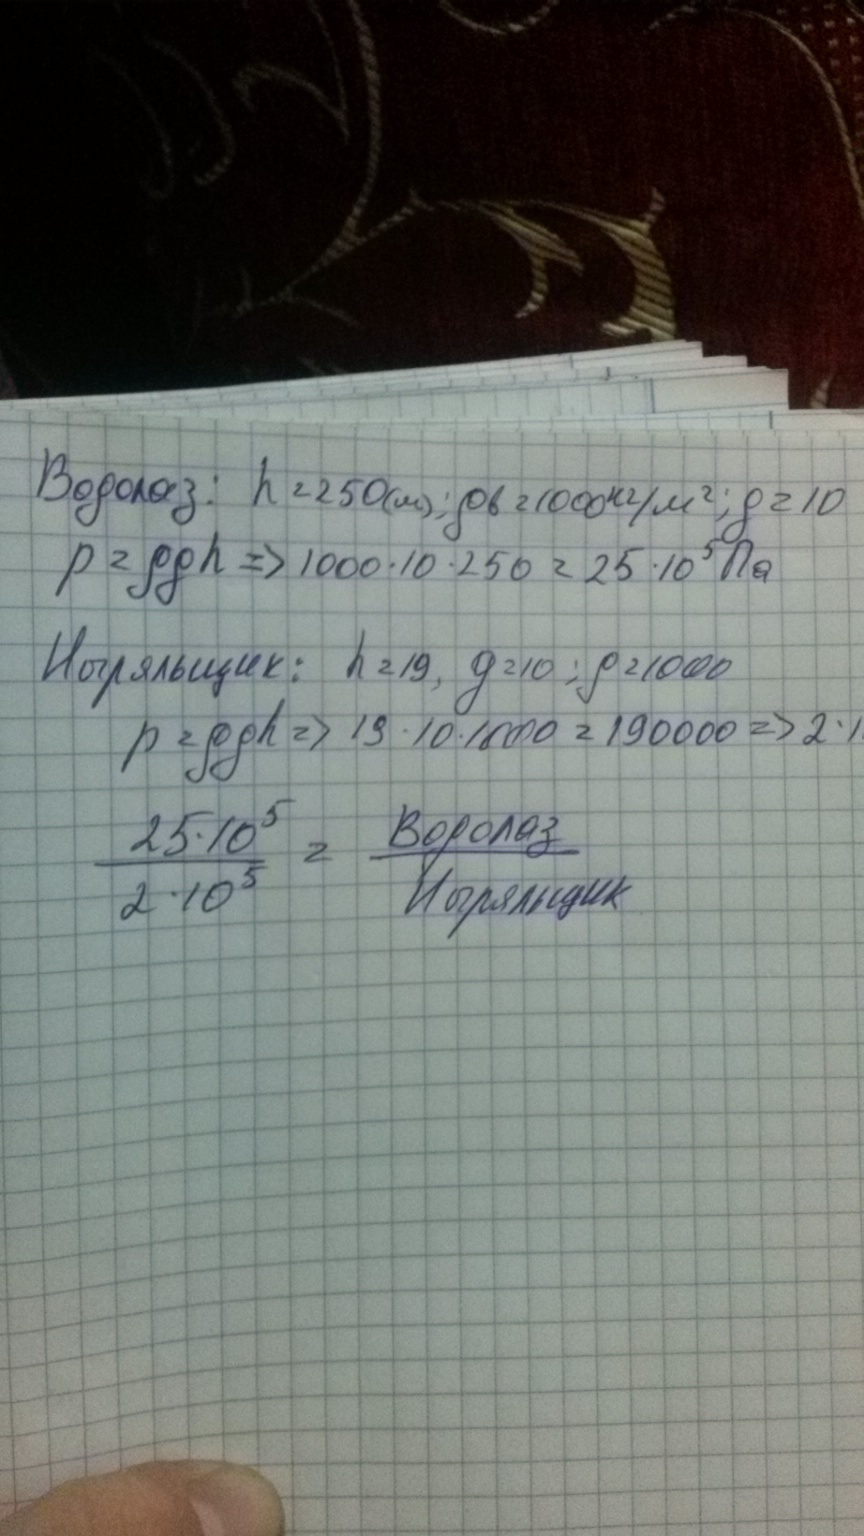 Водолаз: h = 250(м); ρв = 1000кг/м²; g = 10
p = ρgh => 1000·10·250 = 25·10⁵Па
Ныряльщик: h = 19, g = 10; ρ = 1000
p = ρgh => 19·10·1000 = 190000 => 2·1
25·10⁵ = Водолаз
2·10⁵ Ныряльщик